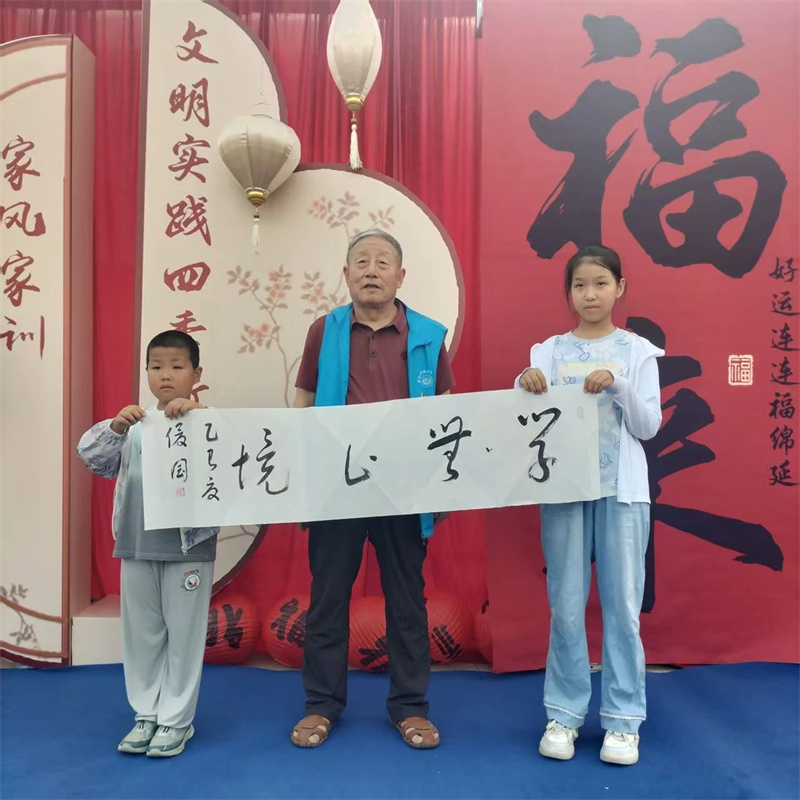 家风家训
文明实践四季
学無止境
乙巳夏
国
福来
好运连连福绵延
福
福